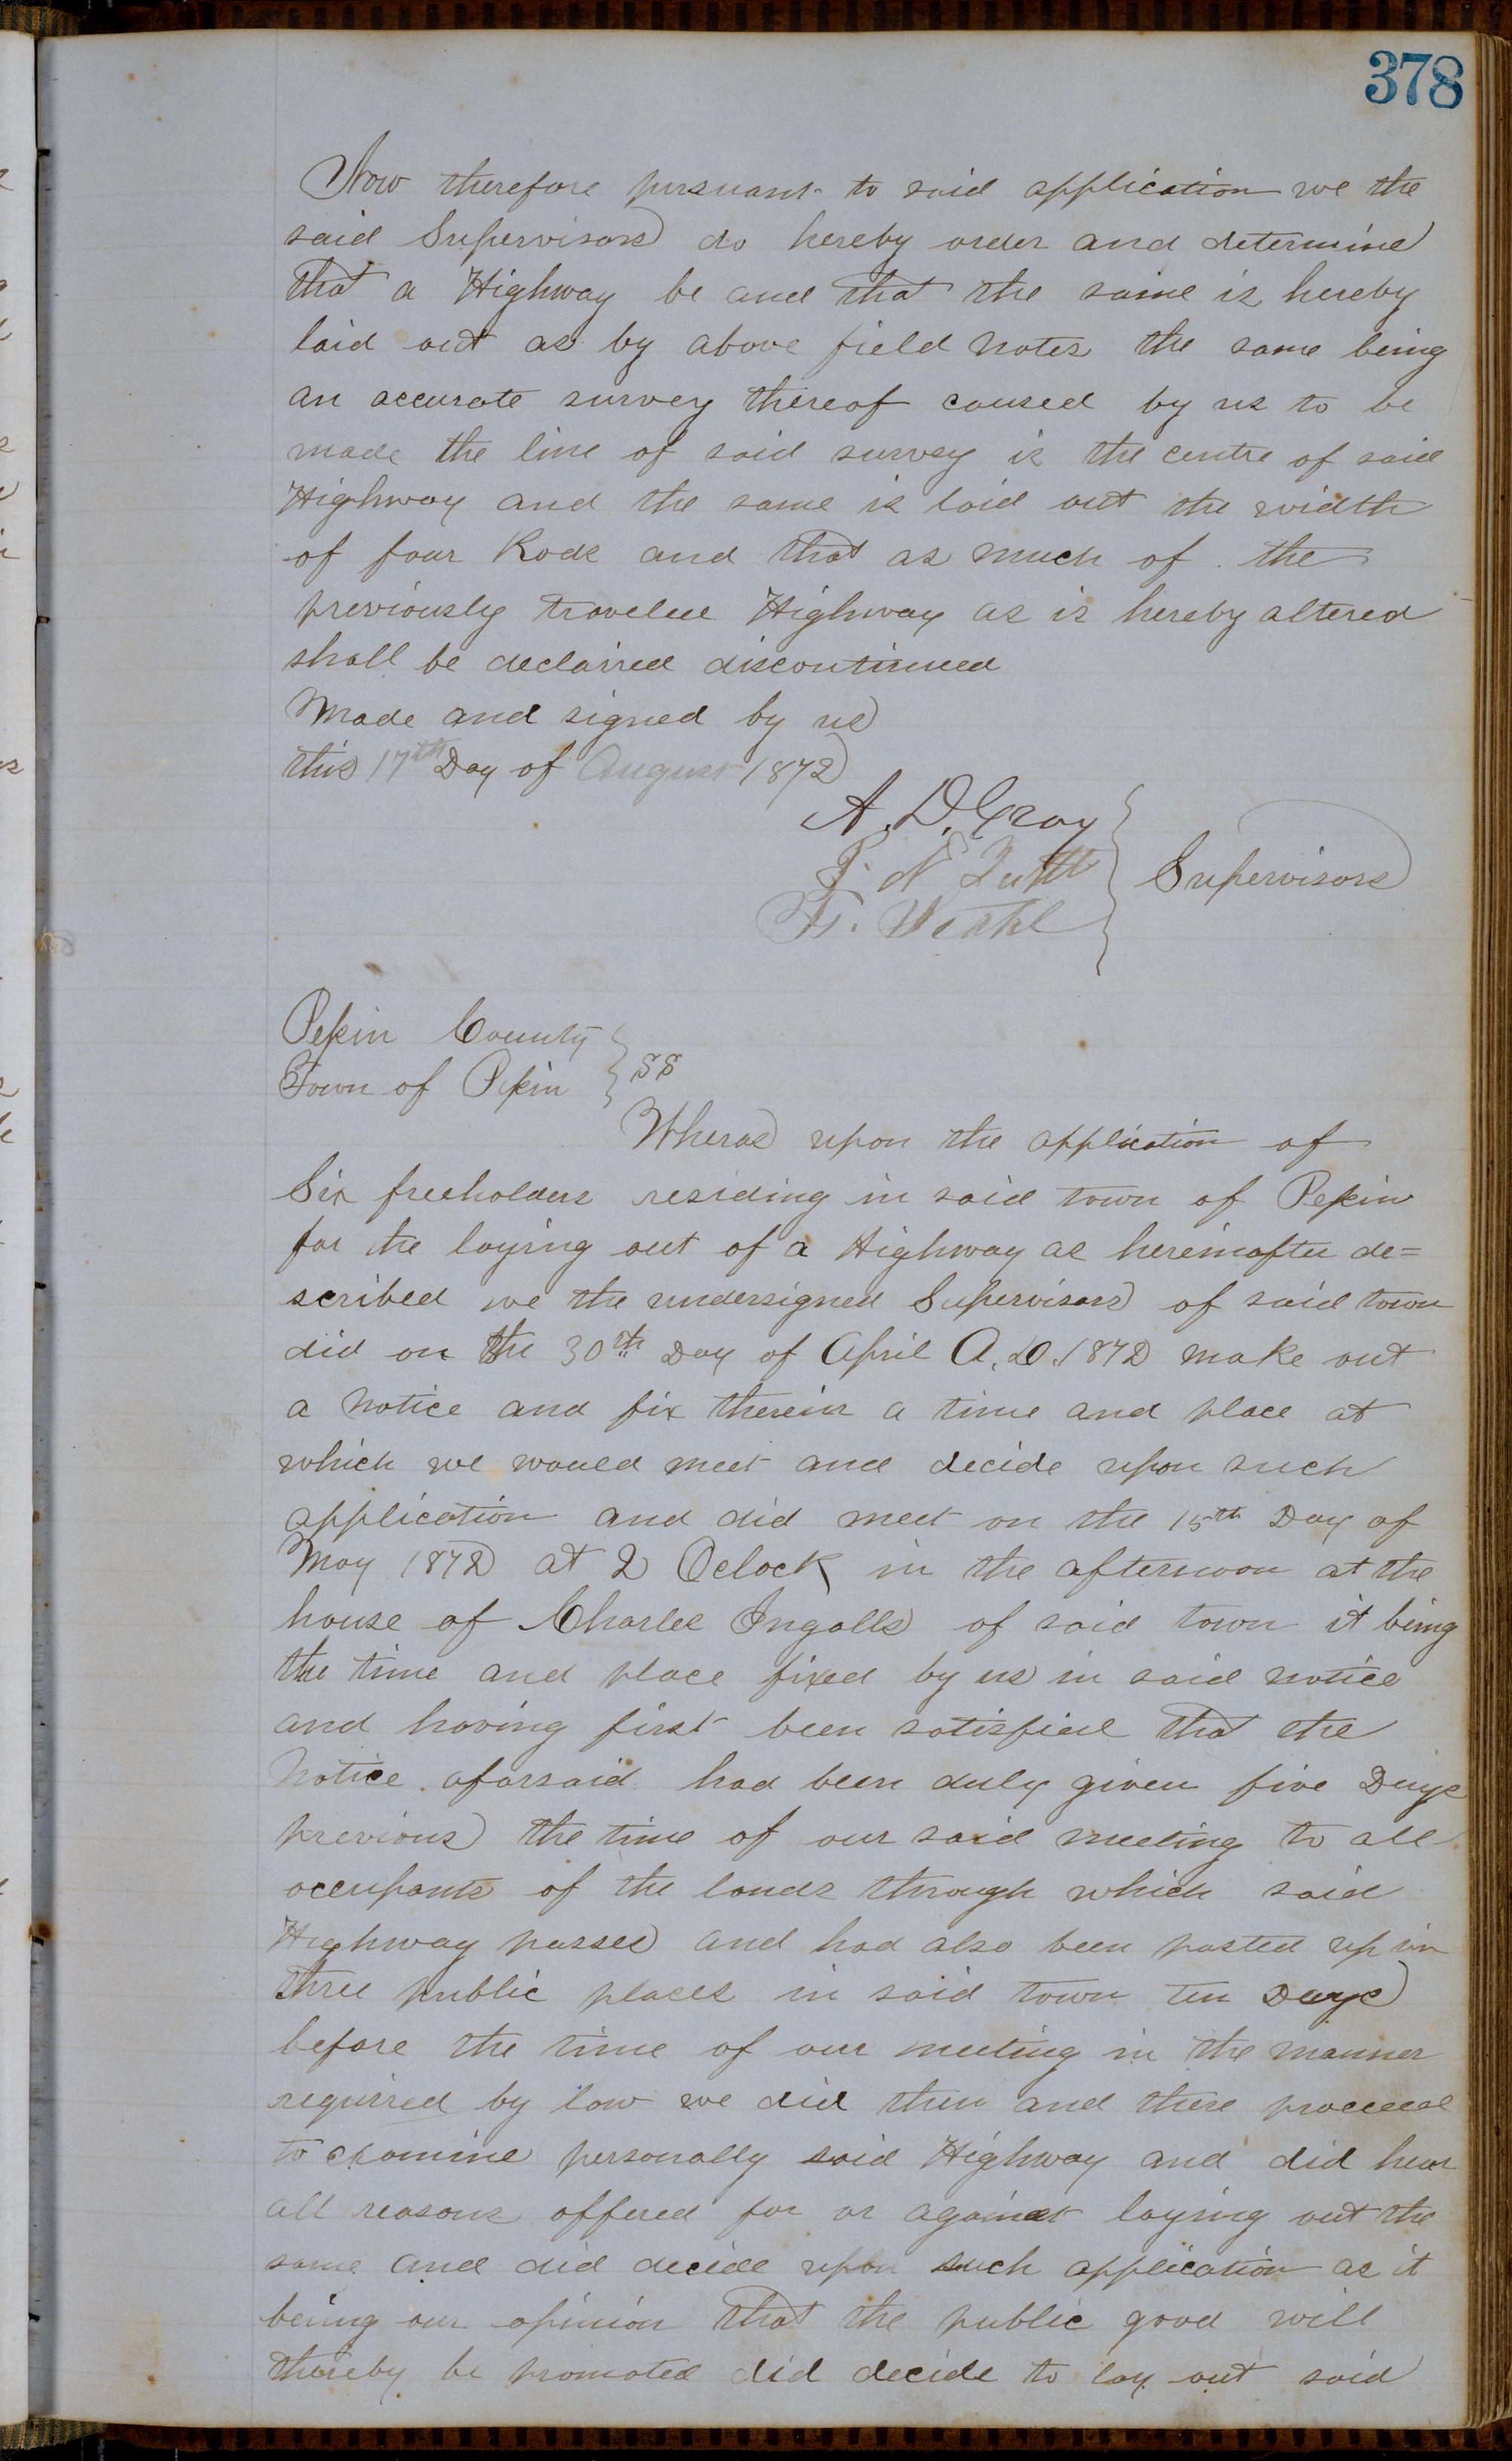 378
Now therefore pursuant to said application we the
said Supervisors do hereby order and determine
that a Highway be and that the same is hereby
laid out as by above field notes the same being
an accurate survey thereof caused by us to be
made the line of said survey is the centre of said
Highway and the same is laid out the width
of four Rods and that as much of the
previously traveled Highway as is hereby altered
shall be declaired discontinued
Made and signed by us
this 17th Day of August 1872
A. D. Gray
F.
Supervisors
Pepin County
Town of Pepin } SS
Wheras upon the application of
Six freeholders residing in said town of Pepin
for the laying out of a Highway as hereinafter de=
scribed we the undersigned Supervisors of said town
did on the 30th Day of April A. D. 1872 make out
a notice and fix therein a time and place at
which we would meet and decide upon such
application and did meet on the 15th Day of
May 1872 at 2 Oclock in the afternoon at the
house of Charles Ingalls of said town it being
the time and place fixed by us in said notice
and having first been satisfied that the
Notice aforsaid had been duly given five Days
previous the time of our said meeting to all
occupants of the lands through which said
Highway passes and had also been posted up in
three public places in said town ten Days
before the time of our meeting in the manner
required by law we did then and there proceed
to examine personally said Highway and did hear
all reasons offered for or against laying out the
same and did decide upon such application as it
being our opinion that the public good will
thereby be promoted did decide to lay out said